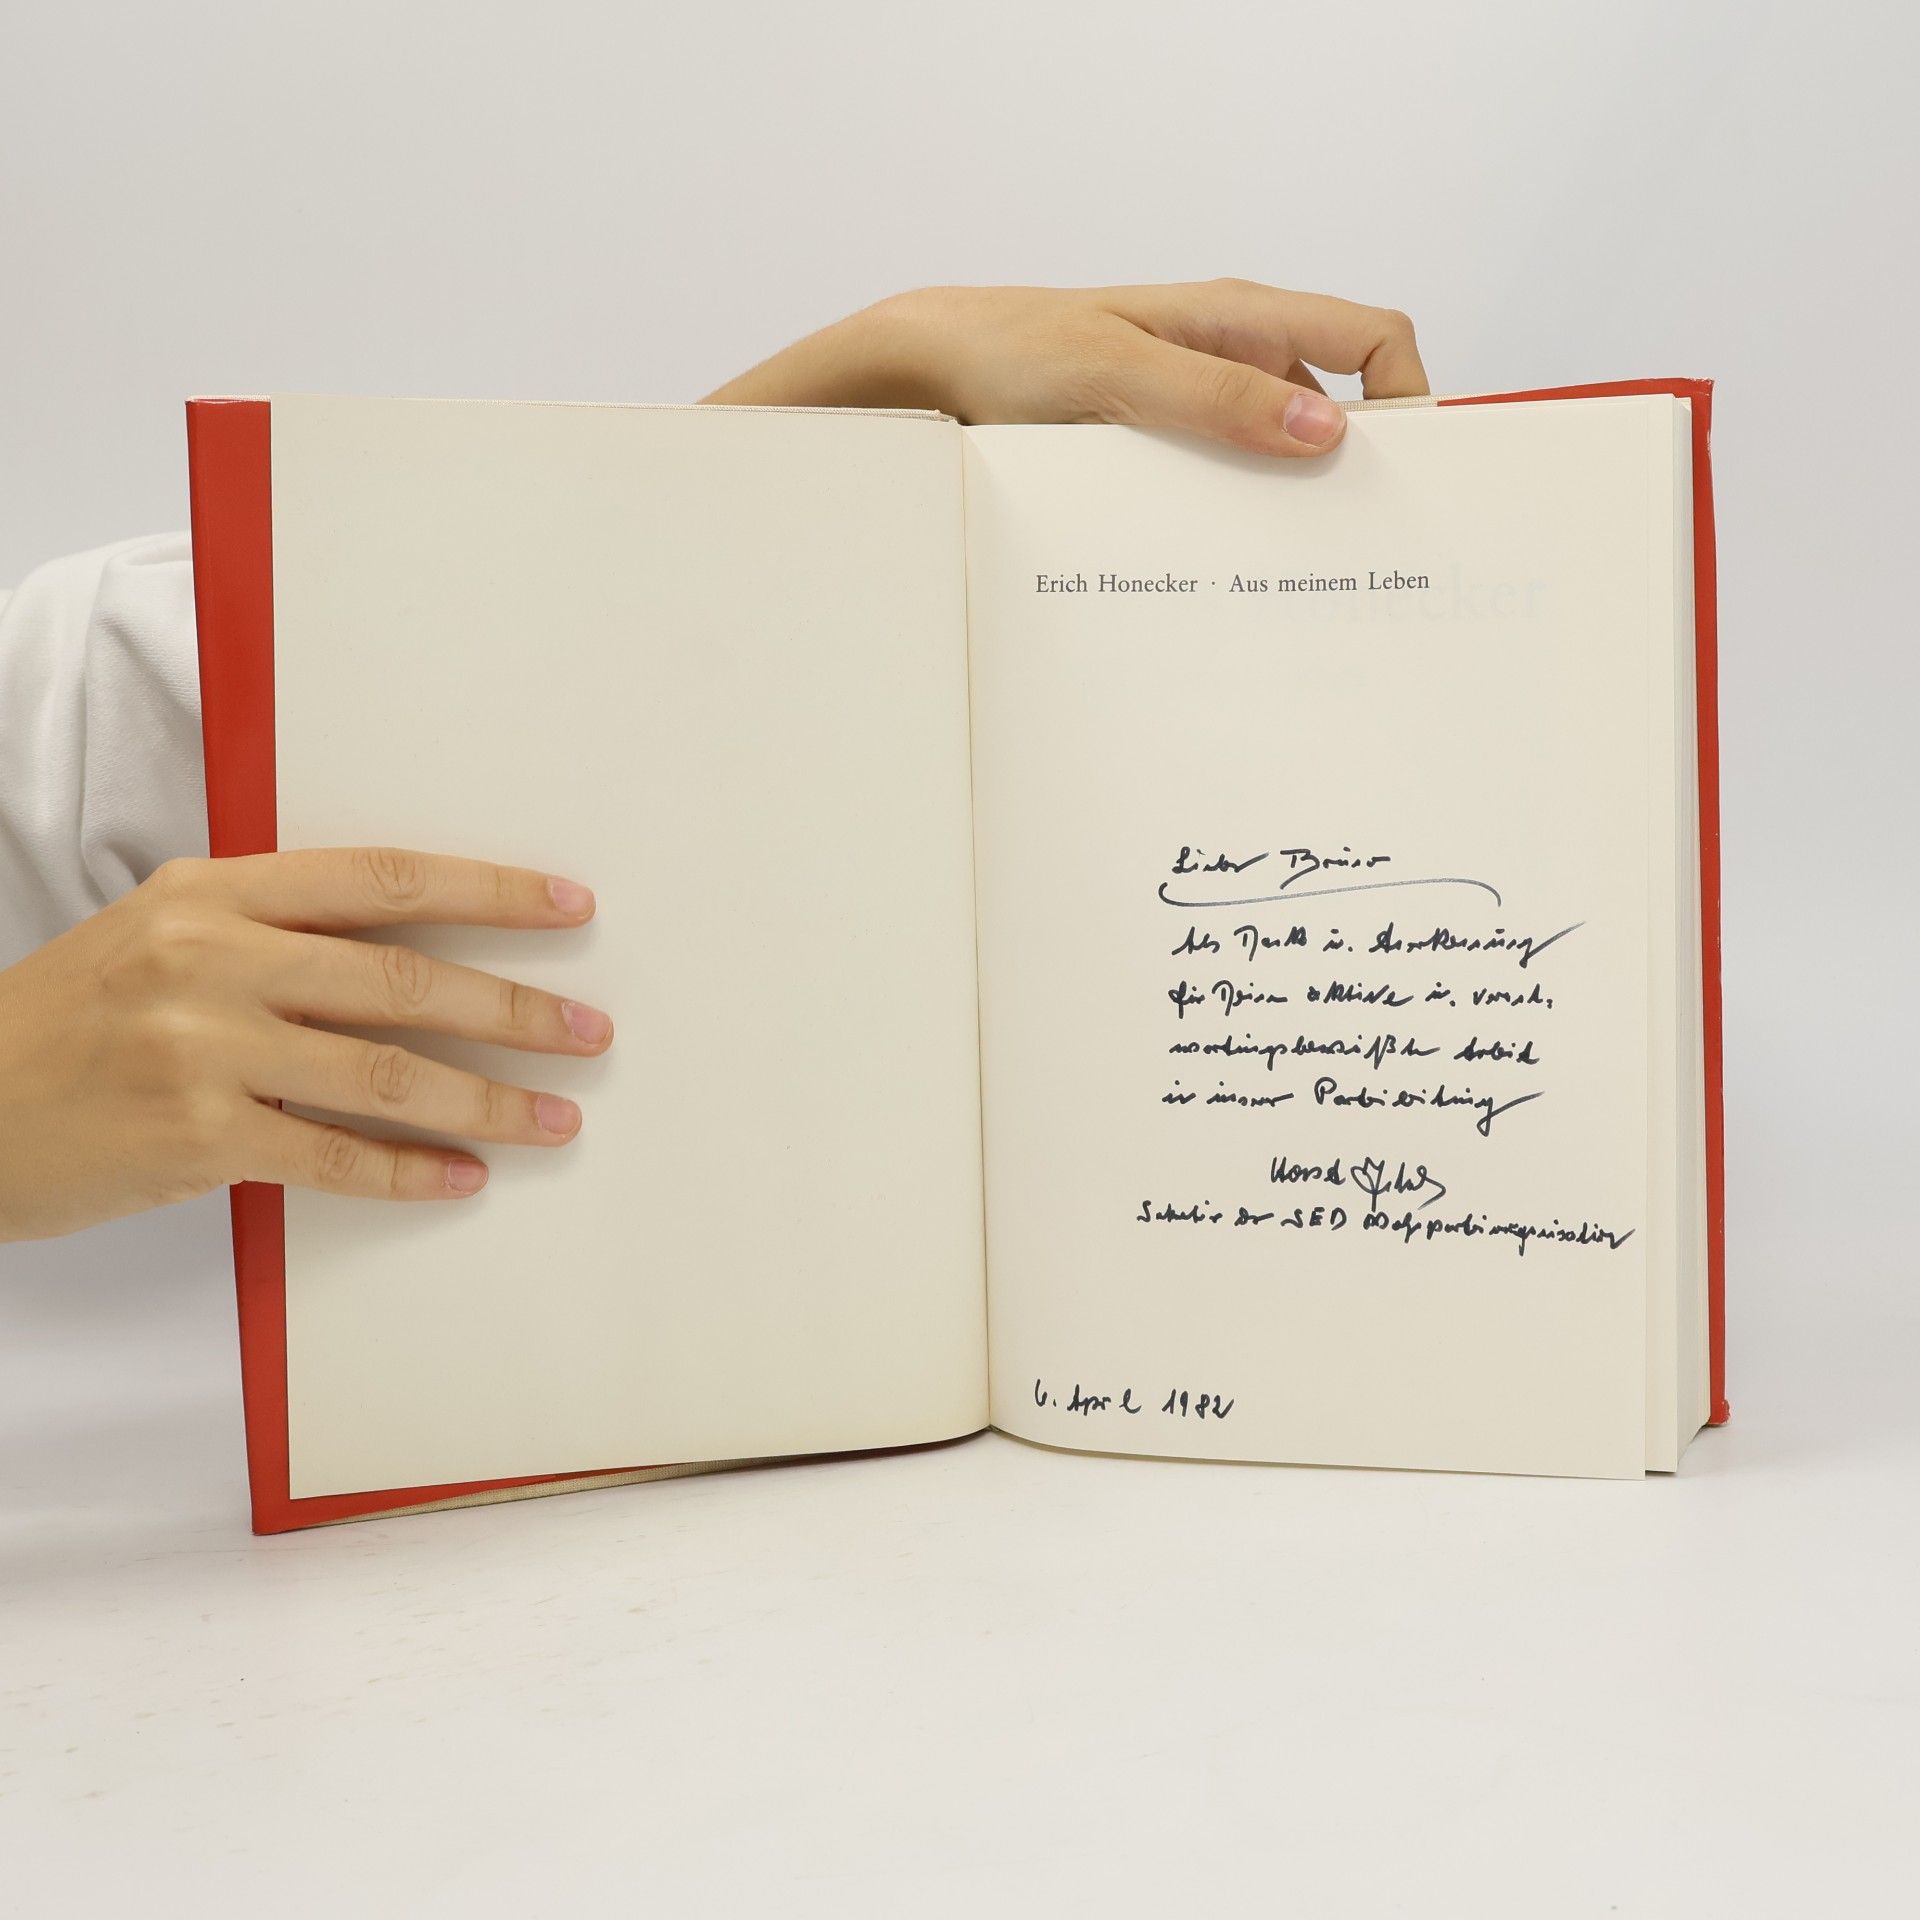 Erich Honecker · Aus meinem Leben
Lieber Bruno
Als Dank u. Anerkennung
für Deine aktive u. verant-
wortungsbewußte Arbeit
in unserer Parteileitung
Horst
Sekretär der SED
6. April 1982